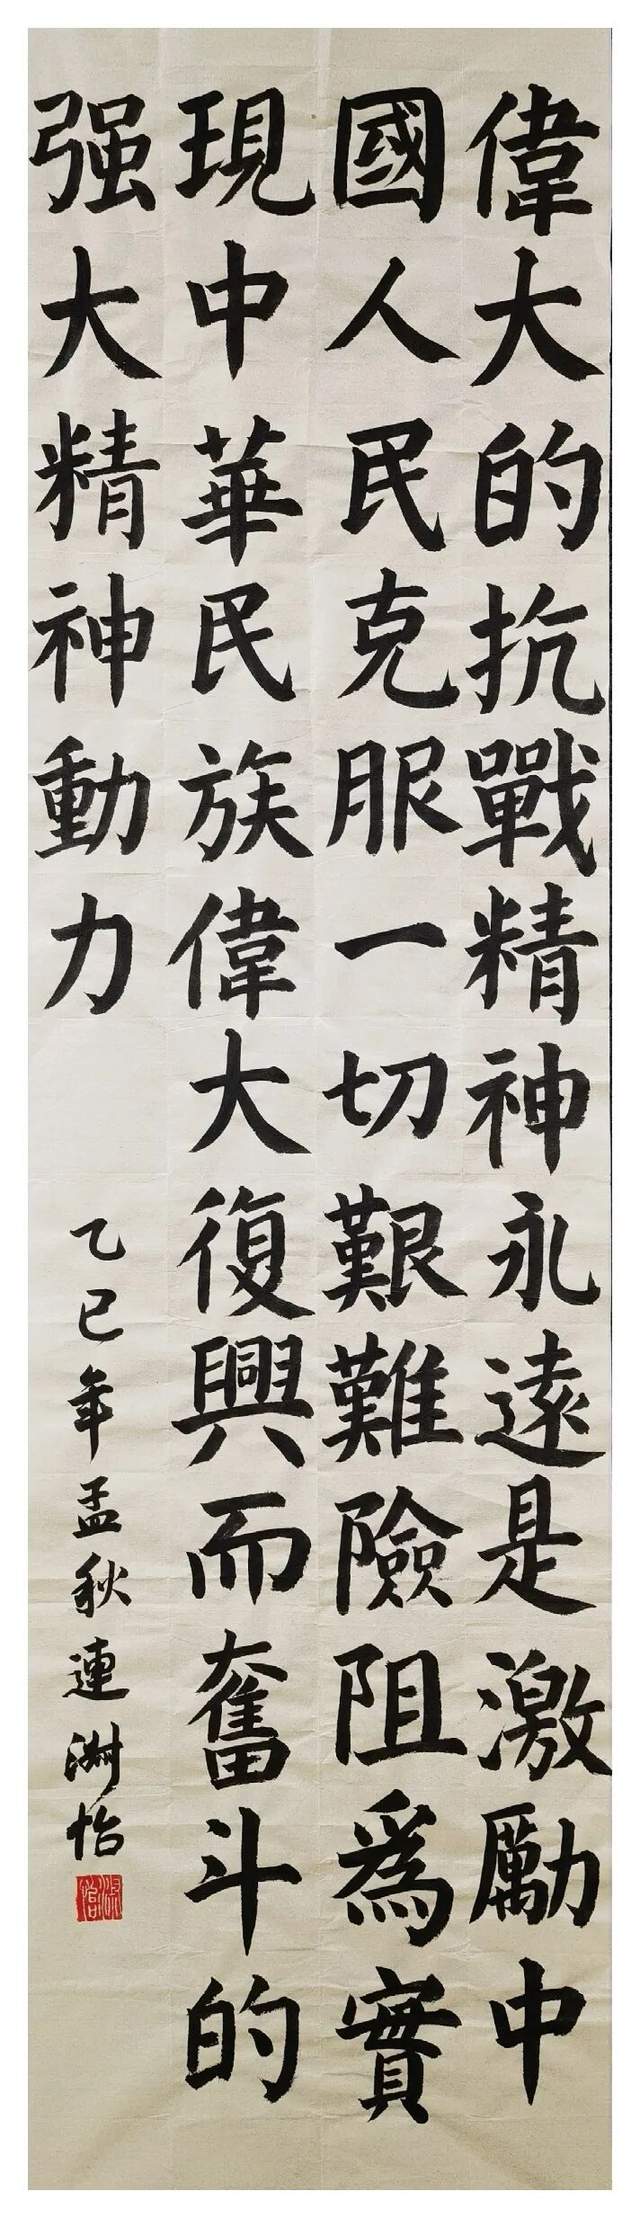 偉大的抗戰精神永遠是激勵中
國人民克服一切艱難險阻爲實
現中華民族偉大復興而奮斗的
强大精神動力
乙巳年孟秋連淑怡